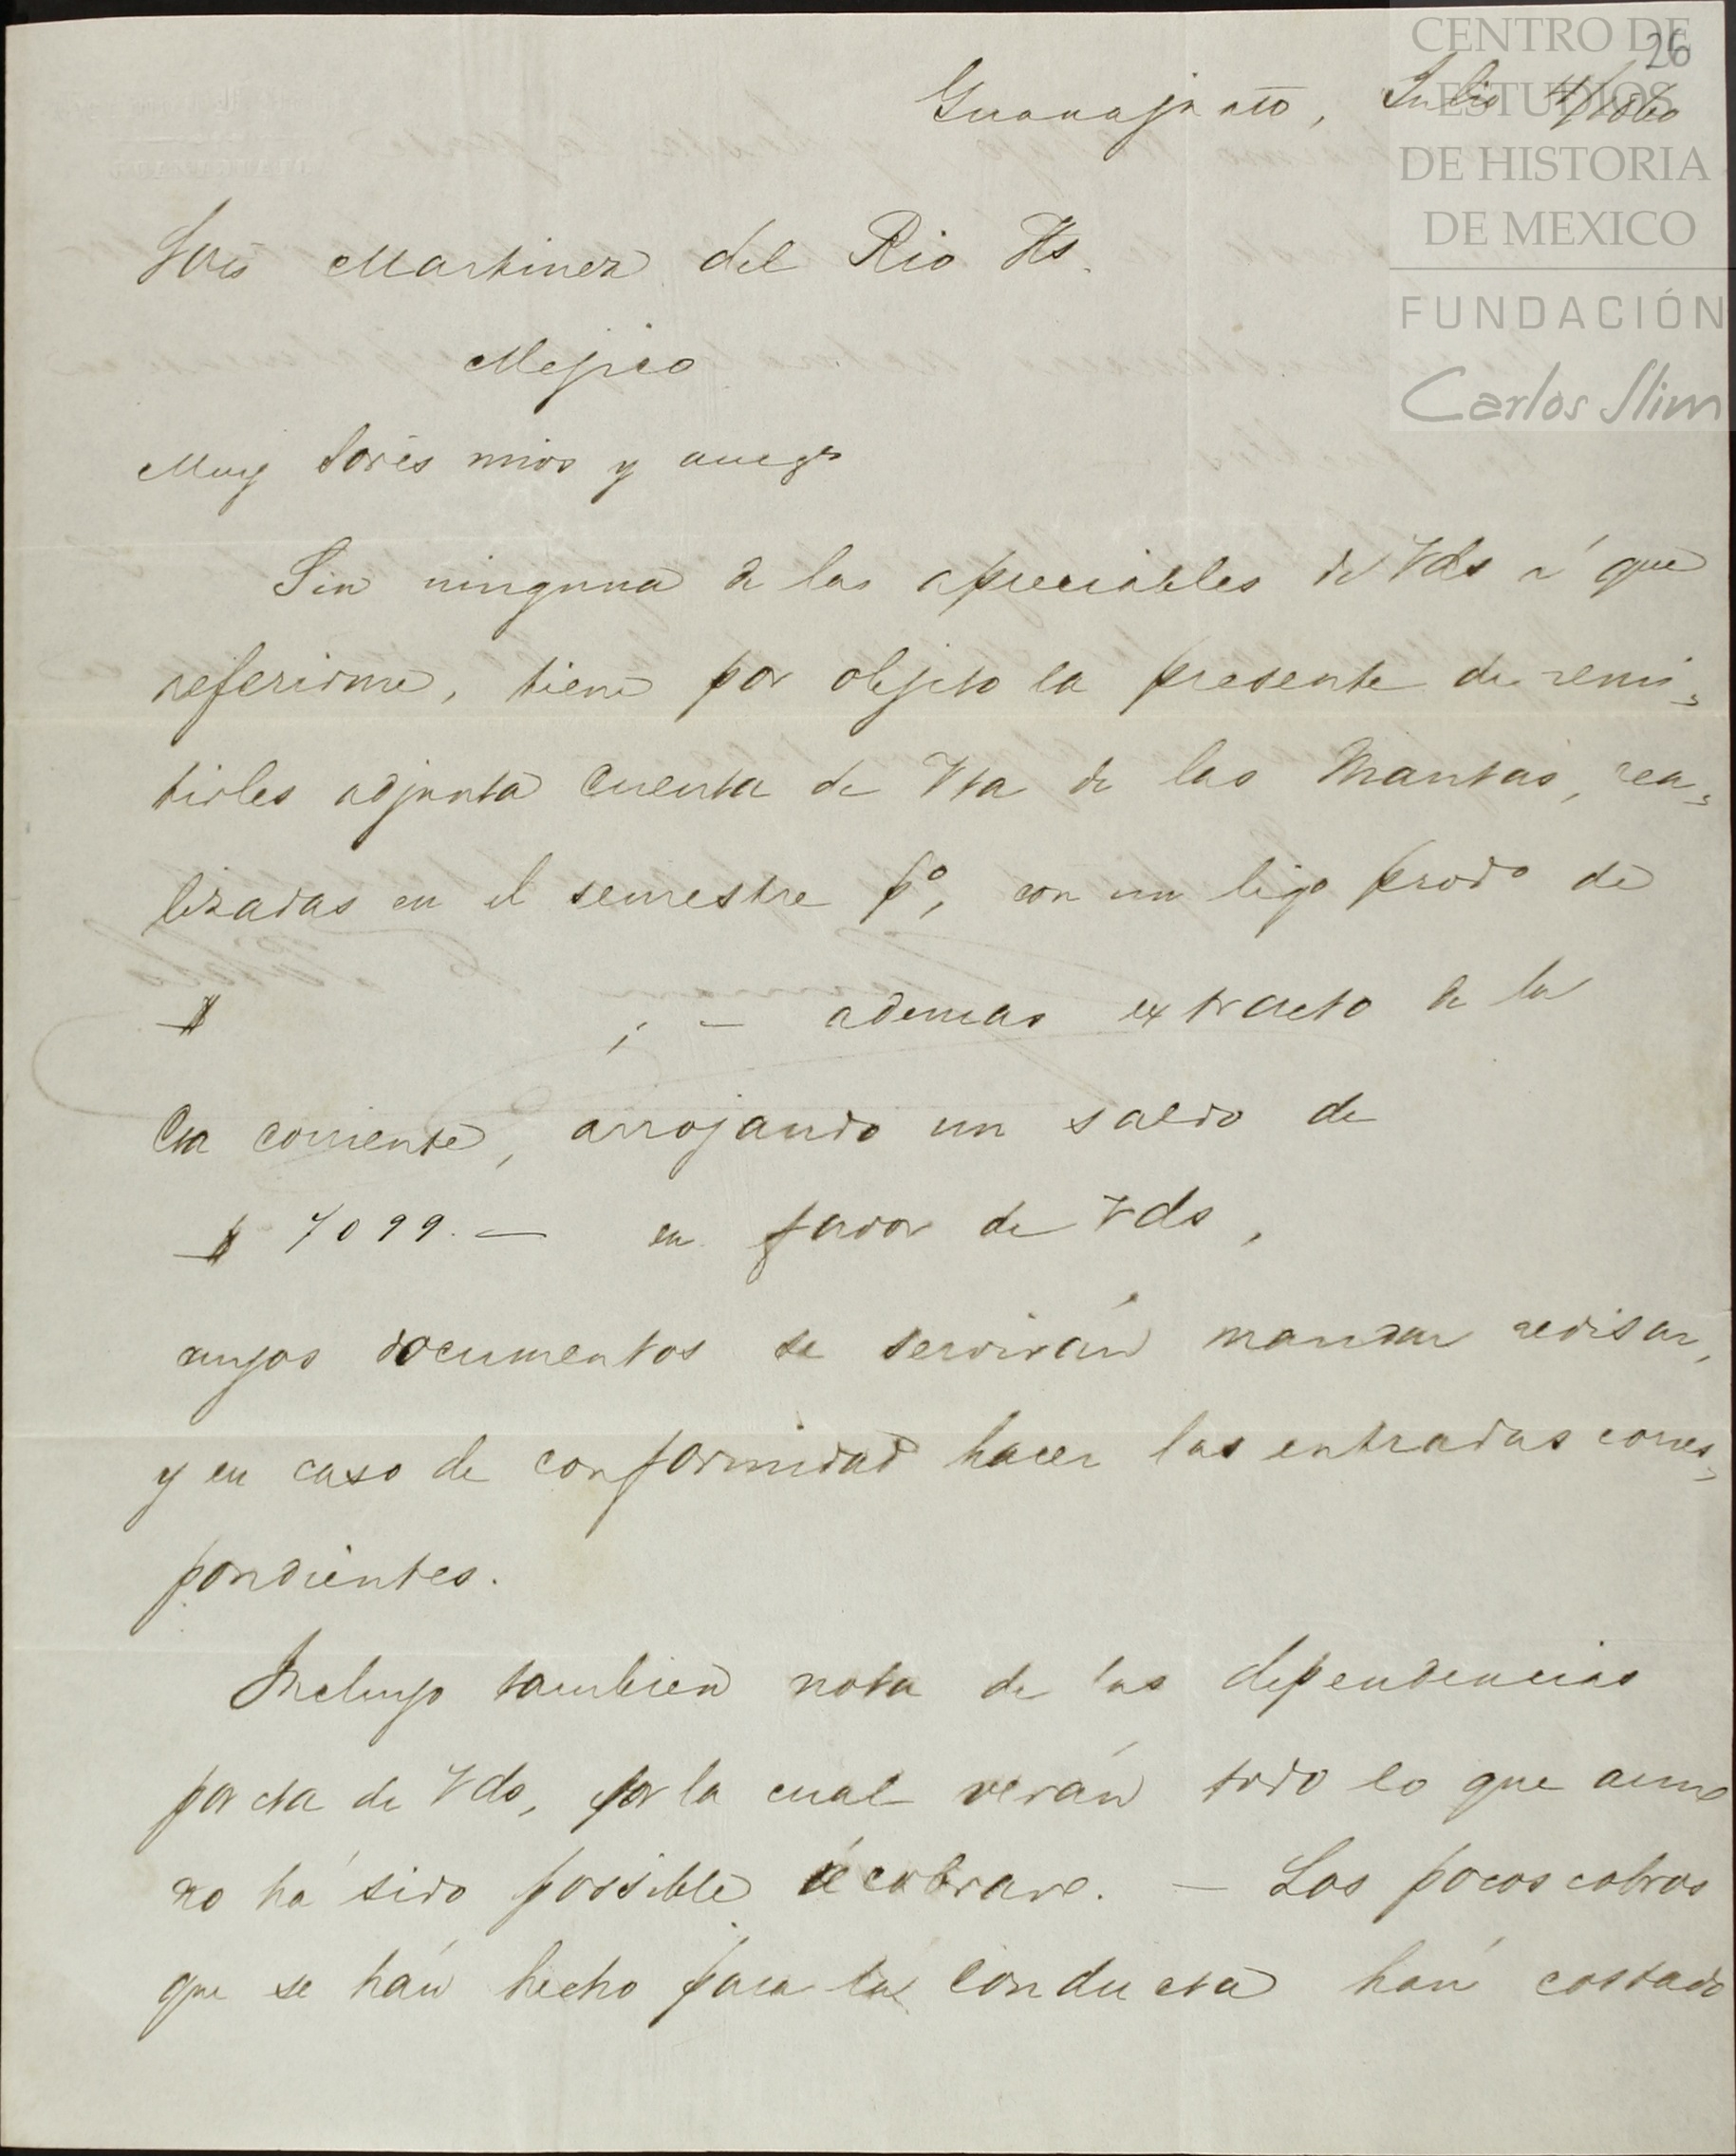 CENTRO DE
ESTUDIOS
DE HISTORIA
DE MEXICO
FUNDACIÓN
Carlos Slim
26
Guanajuato, Julio /1860
Sores Martinez del Rio Hs.
Mejico
Muy Sores mios y amigs
Sin ninguna de las apreciables de Vds á que
referirme, tiene por objeto la presente de remi=
tirles adjunta cuenta de Vta de las Mantas, rea=
lizadas en el semestre po, con un liqo prodo de
$ ; — ademas extracto de la
Cta corriente, arrojando un saldo de
$ 7099.— en favor de Vds,
cuyos documentos se servirán mandar revisar,
y en caso de conformidad hacer las entradas corres=
pondientes.
Incluyo tambien nota de las dependencias
por cta de Vds, por la cual verán todo lo que aun
no há sido possible recobrar. — Los pocos cobros
que se hán hecho para la conducta han costado